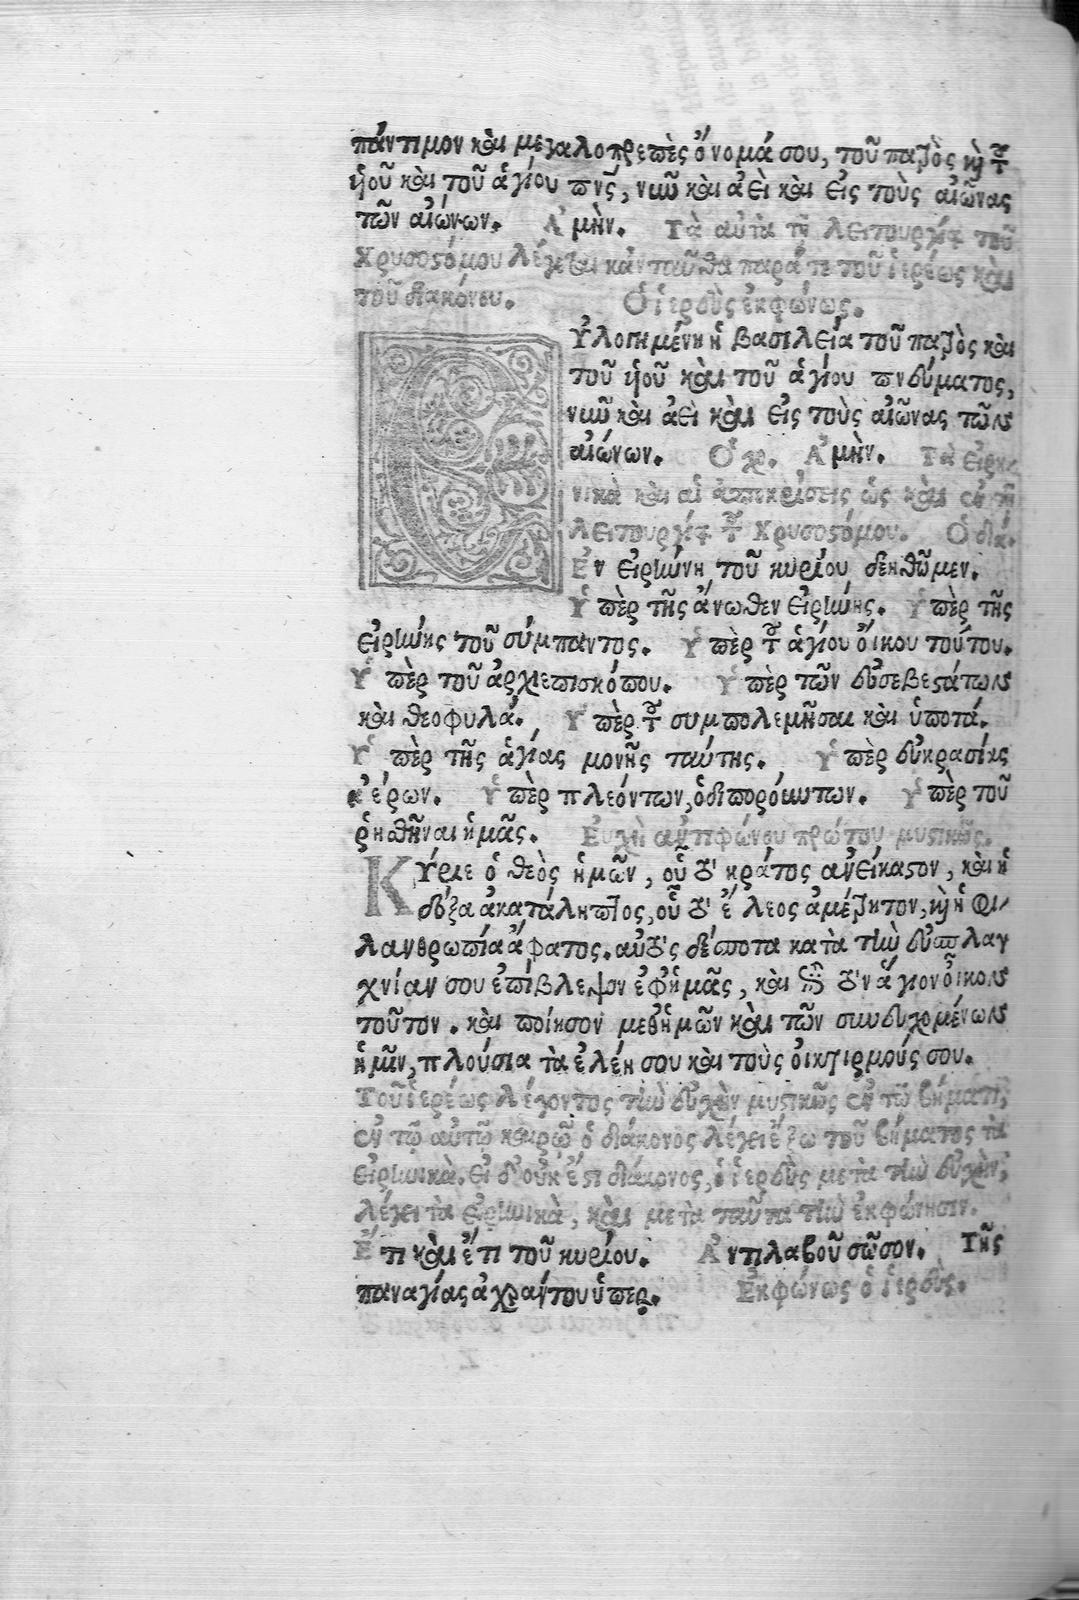 πάντιμον καὶ μεγαλοπρεπὲς ὄνομά σου, τοῦ πατρὸς καὶ τοῦ
ὑιοῦ καὶ τοῦ ἁγίου πνς, νῦν καὶ ἀεὶ καὶ εἰς τοὺς αἰῶνας
τῶν αἰώνων. Ἀμὴν. Τὰ αὐτὰ τῇ λειτουργίᾳ τοῦ
Χρυσοστόμου λέγεται κἀνταῦθα παρά τε τοῦ ἱερέως καὶ
τοῦ διακόνου. Ὁ ἱερεὺς ἐκφώνως.
Εὐλογημένη ἡ βασιλεία τοῦ πατρὸς καὶ
τοῦ ὑιοῦ καὶ τοῦ ἁγίου πνεύματος,
νῦν καὶ ἀεὶ καὶ εἰς τοὺς αἰῶνας τῶν
αἰώνων. Ὁ χο. Ἀμὴν. Τὰ εἰρη
νικὰ καὶ αἱ ἀποκρίσεις ὡς καὶ ἐν τῇ
λειτουργίᾳ τοῦ Χρυσοστόμου. Ὁ διά.
Ἐν εἰρήνῃ τοῦ κυρίου δεηθῶμεν.
Ὑπὲρ τῆς ἄνωθεν εἰρήνης. Ὑπὲρ τῆς
εἰρήνης τοῦ σύμπαντος. Ὑπὲρ τοῦ ἁγίου οἴκου τούτου.
Ὑπὲρ τοῦ ἀρχιεπισκόπου. Ὑπὲρ τῶν εὐσεβεστάτων
καὶ θεοφυλά. Ὑπὲρ τοῦ συμπολεμῆσαι καὶ ὑποτά.
Ὑπὲρ τῆς ἁγίας μονῆς ταύτης. Ὑπὲρ εὐκρασίας
ἀέρων. Ὑπὲρ πλεόντων, ὁδιπορόυντων. Ὑπὲρ τοῦ
ῥηθῆναι ἡμᾶς. Εὐχὴ ἀντιφώνου πρώτου μυστικῶς.
Κύριε ὁ θεὸς ἡμῶν, οὗ τὸ κράτος ἀνείκαστον, καὶ ἡ
δόξα ἀκατάληπτος, οὗ τὸ ἔλεος ἀμέτρητον, καὶ ἡ φι
λανθρωπία ἄφατος. αὐτὸς δέσποτα κατὰ τὴν εὐσπλαγ
χνίαν σου ἐπίβλεψον ἐφ' ἡμᾶς, καὶ ἐπὶ τὸν ἅγιον οἶκον
τοῦτον. καὶ ποίησον μεθ' ἡμῶν καὶ τῶν συνευχομένων
ἡμῖν, πλούσια τὰ ἐλέη σου καὶ τοὺς οἰκτιρμούς σου.
Τοῦ ἱερέως λέγοντος τὴν εὐχὴν μυστικῶς ἐν τῷ βήματι,
ἐν τῷ αὐτῷ καιρῷ ὁ διάκονος λέγει ἔξω τοῦ βήματος τὰ
εἰρηνικὰ. Εἰ δ' οὐκ ἔστι διάκονος, ὁ ἱερεὺς μετὰ τὴν εὐχὴν,
λέγει τὰ εἰρηνικὰ, καὶ μετὰ ταῦτα τὴν ἐκφώνησιν.
Ἔτι καὶ ἔτι τοῦ κυρίου. Ἀντιλαβοῦ σῶσον. Τῆς
παναγίας ἀχράντου ὑπερ. Ἐκφώνως ὁ ἱερεὺς.